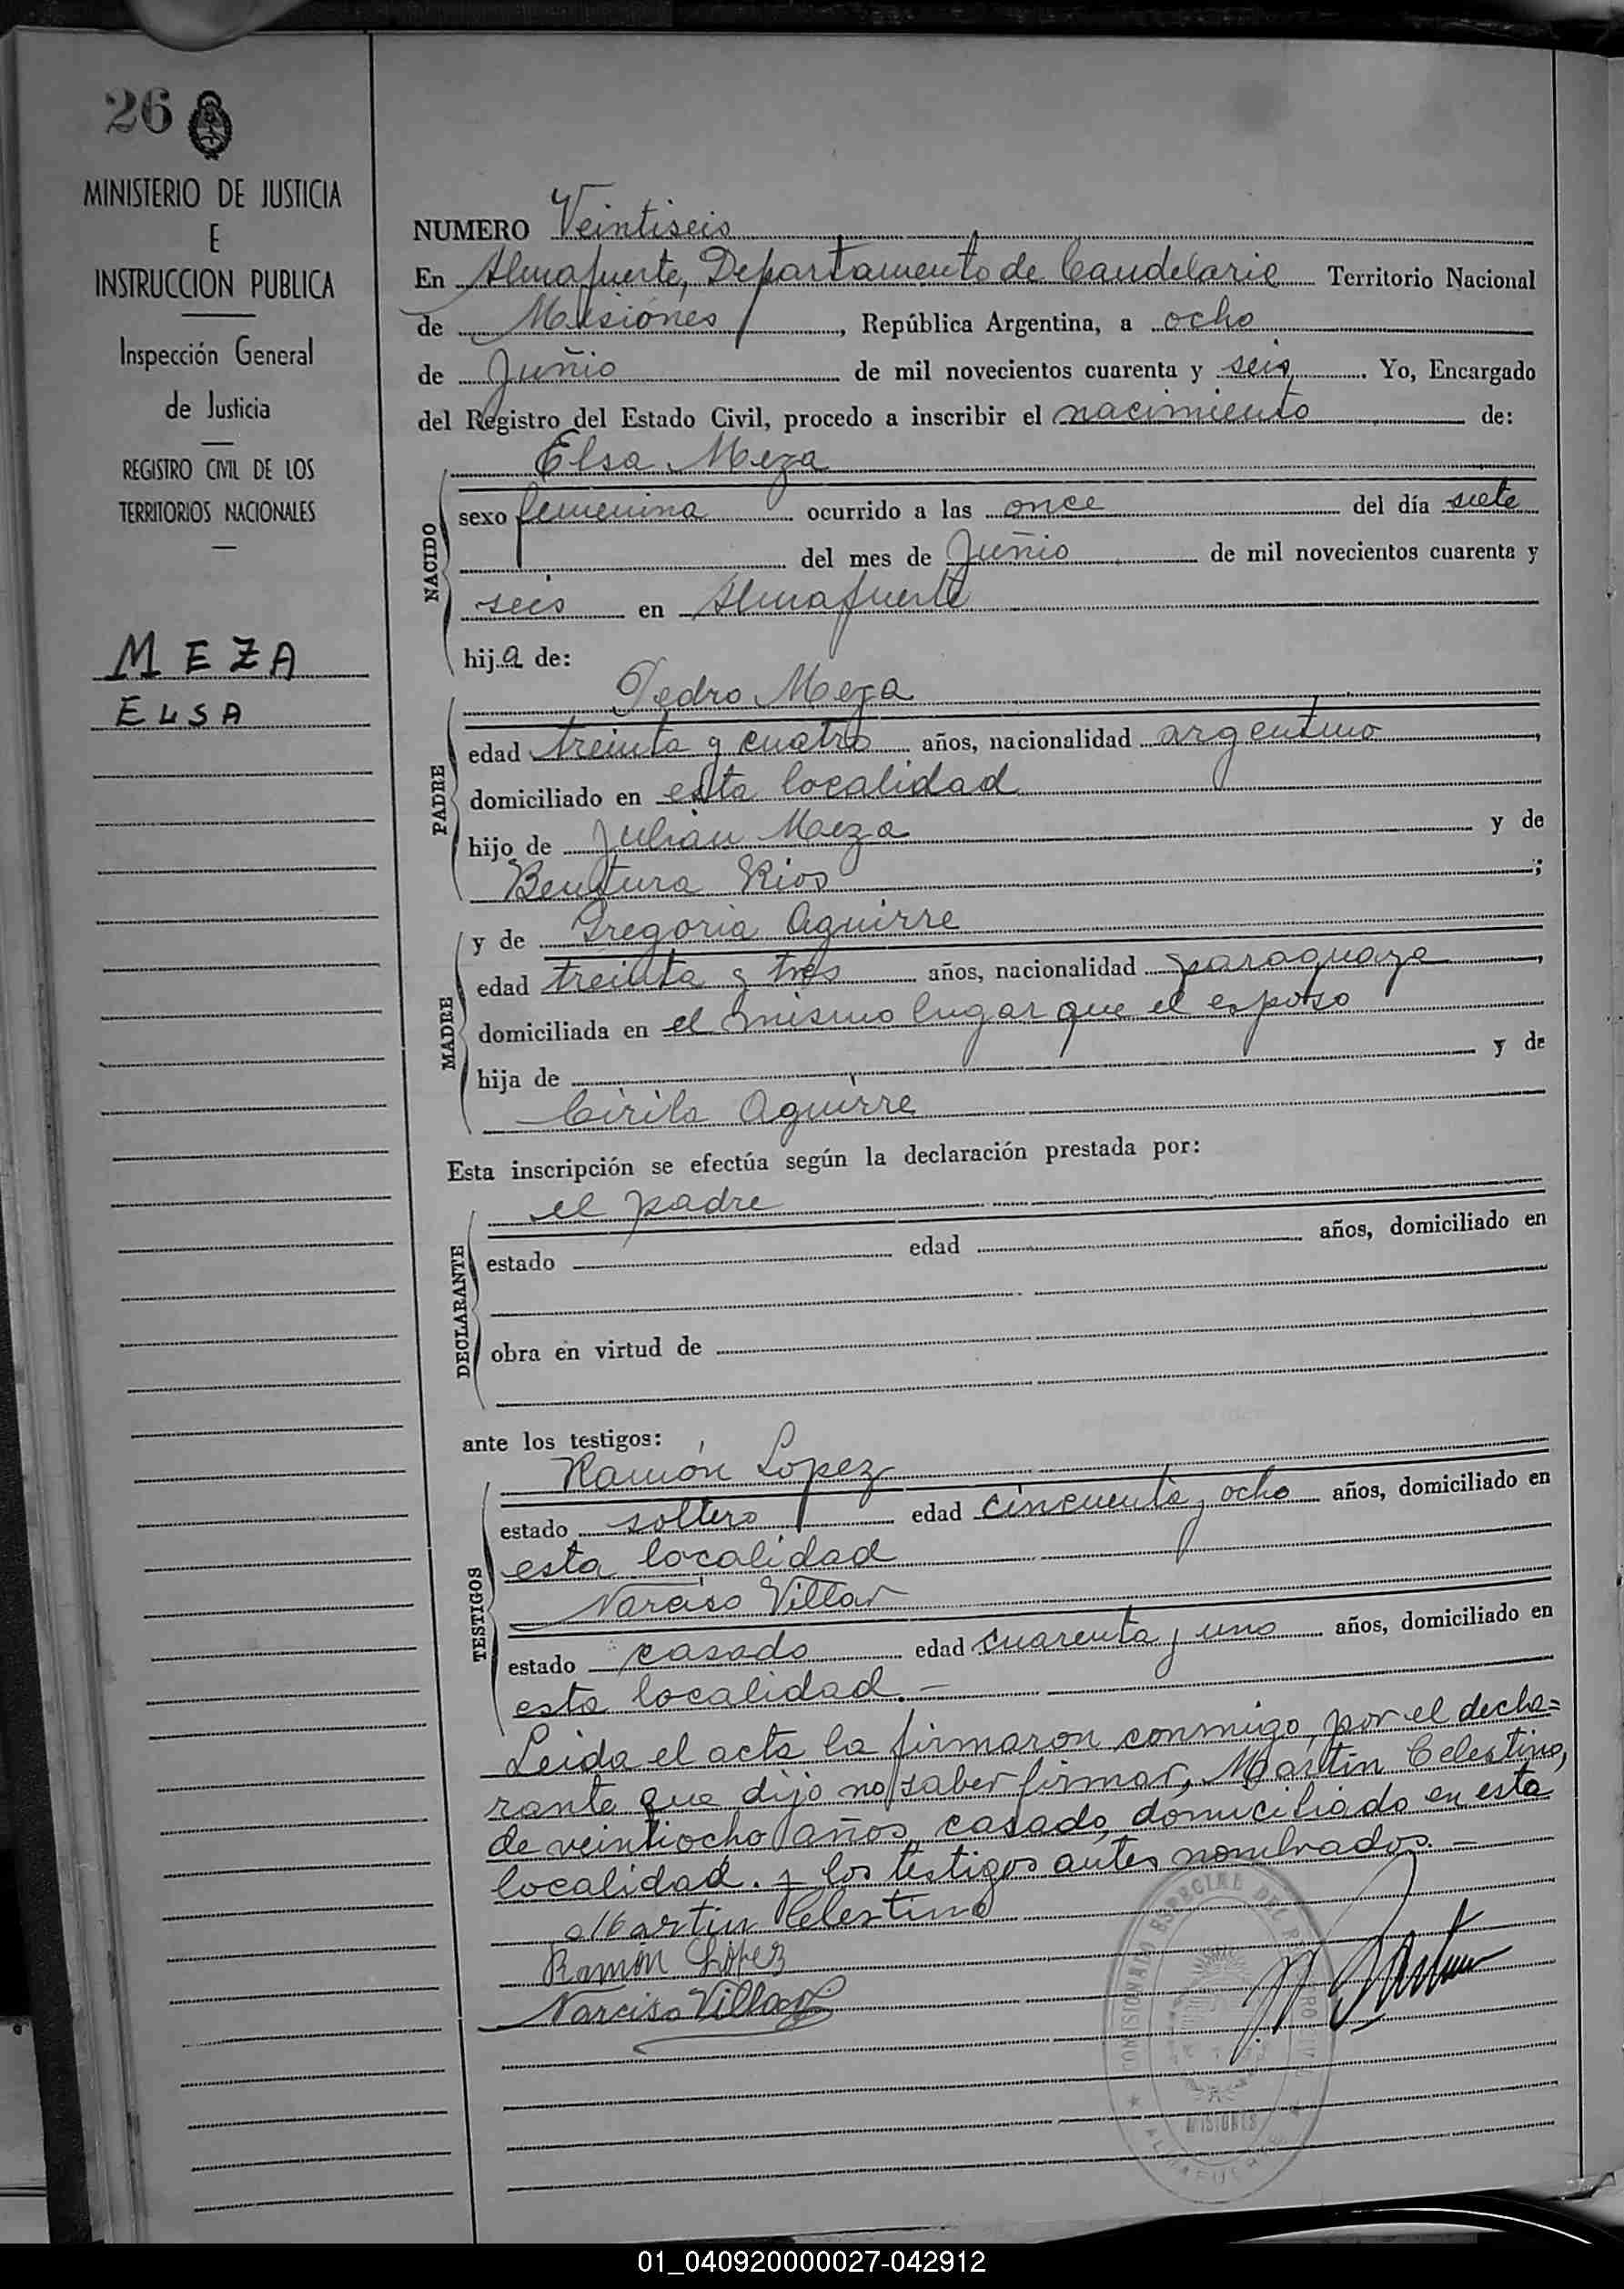 26
MINISTERIO DE JUSTICIA
E
INSTRUCCION PUBLICA
Inspección General
de Justicia
REGISTRO CIVIL DE LOS
TERRITORIOS NACIONALES
MEZA
ELSA
NUMERO Veintiseis
En Almafuerte, Departamento de Candelaria Territorio Nacional
de Misiones, República Argentina, a ocho
de Juñio de mil novecientos cuarenta y seis. Yo, Encargado
del Registro del Estado Civil, procedo a inscribir el nacimiento de:
Elsa Meza
NACIDO
sexo femenina ocurrido a las once del día siete
del mes de Juñio de mil novecientos cuarenta y
seis en Almafuerte
hija de:
Pedro Meza
PADRE
edad treinta y cuatro años, nacionalidad argentino,
domiciliado en esta localidad
hijo de Julián Meza y de
Bentura Rios;
y de Gregoria Aguirre
MADRE
edad treinta y tres años, nacionalidad paraguaya,
domiciliada en el mismo lugar que el esposo
hija de y de
Cirila Aguirre
Esta inscripción se efectúa según la declaración prestada por:
el padre
DECLARANTE
estado edad años, domiciliado en
obra en virtud de
ante los testigos:
Ramón Lopez
TESTIGOS
estado soltero edad cincuenta y ocho años, domiciliado en
esta localidad
Narciso Villar
estado casado edad cuarenta y uno años, domiciliado en
esta localidad.-
Leida el acta la firmaron conmigo, por el decla=
rante que dijo no saber firmar, Martín Celestino,
de veintiocho años, casado, domiciliado en esta
localidad. y los testigos antes nombrados.-
Martin Celestino
Ramón López
Narciso Villar
COMISIONADO ESPECIAL DEL REGISTRO CIVIL
MISIONES
ALMAFUERTE
01_040920000027-042912